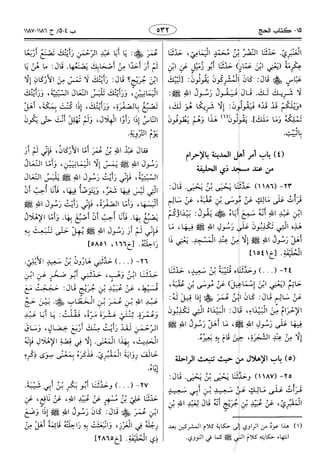 ١٥- كتاب الحج
٥٣٢
ب ٥،٤/ ح ١١٨٦-١١٨٧
العنبري. حدثنا النضر بن محمد اليمامي، حدثنا
عكرمة (يعني ابن عمار) حدثنا أبو زميل عن ابن
عباس قال: كان المشركون يقولون: لبيك
لا شريك لك. قال: فيقول رسول الله ﷺ:
«ويلكم قد قد» فيقولون: إلا شريكا هو لك،
تملكه وما ملك(١). يقولون هذا وهم يطوفون
بالبيت.
(٤) باب أمر أهل المدينة بالإحرام
من عند مسجد ذي الحليفة
٢٣- (١١٨٦) حدثنا يحيى بن يحيى. قال:
قرأت على مالك عن موسى بن عقبة، عن سالم
ابن عبد الله أنه سمع أباه يقول: بيداؤكم
هذه التي تكذبون على رسول الله ﷺ فيها، ما
أهل رسول الله ﷺ إلا من عند المسجد. يعني ذا
الحليفة. [خ١٥٤١]
٢٤- (...) وحدثناه قتيبة بن سعيد. حدثنا
حاتم (يعني ابن إسماعيل) عن موسى بن عقبة،
عن سالم قال: كان ابن عمر إذا قيل له:
الإحرام من البيداء، قال: البيداء التي تكذبون
فيها على رسول الله ﷺ، ما أهل رسول الله ﷺ
إلا من عند الشجرة، حين قام به بعيره.
(٥) باب الإهلال من حيث تنبعث الراحلة
٢٥- (١١٨٧) وحدثنا يحيى بن يحيى. قال:
قرأت على مالك عن سعيد بن أبي سعيد
المقبري، عن عبيد بن جريج أنه قال لعبد الله بن
عمر: يا أبا عبد الرحمن رأيتك تصنع أربعا
لم أر أحدا من أصحابك يصنعها. قال: ما هن يا
ابن جريج؟ قال: رأيتك لا تمس من الأركان إلا
اليمانيين، ورأيتك تلبس النعال السبتية، ورأيتك
تصبغ بالصفرة، ورأيتك، إذا كنت بمكة، أهل
الناس إذا رأوا الهلال، ولم تهلل أنت حتى يكون
يوم التروية.
فقال عبد الله بن عمر: أما الأركان، فإني لم أر
رسول الله ﷺ يمس إلا اليمانيين، وأما النعال
السبتية، فإني رأيت رسول الله ﷺ يلبس النعال
التي ليس فيها شعر، ويتوضأ فيها، فأنا أحب أن
ألبسها، وأما الصفرة، فإني رأيت رسول الله ﷺ
يصبغ بها، فأنا أحب أن أصبغ بها. وأما الإهلال
فإني لم أر رسول الله ﷺ يهل حتى تنبعث به
راحلته. [خ١٦٦، ٥٨٥١]
٢٦- (...) حدثني هارون بن سعيد الأيلي.
حدثنا ابن وهب، حدثني أبو صخر عن ابن
قسيط، عن عبيد بن جريج قال: حججت مع
عبد الله بن عمر بن الخطاب، بين حج
وعمرة، ثنتي عشرة مرة، فقلت: يا أبا عبد
الرحمن لقد رأيت منك أربع خصال، وساق
الحديث، بهذا المعنى، إلا في قصة الإهلال فإنه
خالف رواية المقبري. فذكره بمعنى سوى ذكره
إياه.
٢٧- (...) وحدثنا أبو بكر بن أبي شيبة.
حدثنا علي بن مسهر عن عبيد الله، عن نافع، عن
ابن عمر قال: كان رسول الله ﷺ إذا وضع
رجله في الغرز، وانبعثت به راحلته قائمة أهل من
ذي الحليفة. [خ٢٨٦٥]
(١) هذا عود من الراوي إلى حكاية كلام المشركين بعد
انتهاء حكايته كلام النبي ﷺ كما في النووي.